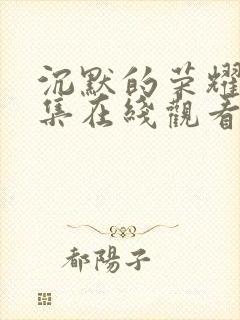 沉默的荣耀
集在綫觀看
都陽子